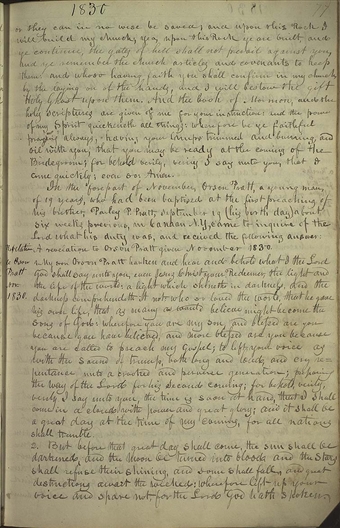 1830
or they can in no wise be saved; and upon this Rock I
will build my church; yea, upon this Rock ye are built, and if
ye continue, the gates of hell shall not prevail against you;
and ye remember the church articles and covenants to keep
them; and whoso having faith you shall confirm in my church,
by the laying on of the hands, and I will bestow the gift
Holy Ghost upon them. And the book of Mormon, and the
holy scriptures are given of me for your instruction; and the power
of my Spirit quickeneth all things: wherefore be ye faithful
praying always, having your lamps trimmed and burning, and
oil with you, that you may be ready at the coming of the
Bridegroom; for behold verily, verily I say unto you, that I
come quickly; even so: Amen.
In the forepart of November, Orson Pratt, a young man,
of 19 years, who had been baptised at the first preaching of
my brother, Parley P. Pratt, September 19 (his birth day) about
six weeks previous, in Canaan N.Y., came to inquire of the
Lord what his duty was, and received the following answer:
A revelation to Orson Pratt given November 1830.
My son Orson Pratt hearken and hear and behold what I the Lord
God shall say unto you, even Jesus Christ your Redeemer, the light and
the life of the world; a light which shineth in darkness, and the
darkness comprehendeth it not: who so loved the world, that he gave
his own life, that as many as would believe might become the
sons of God: wherefore you are my son, and blessed are you
because you have believed, and more blessed are you because
you are called to preach my Gospel; to lift your voice as
with the sound of a trump, both long and loud, and cry re-
pentance unto a crooked and perverse generation; preparing
the way of the Lord for his second coming; for behold verily,
verily I say unto you, the time is soon at hand, that I shall
come in a cloud with power and great glory; and it shall be
a great day at the time of my coming, for all nations
shall tremble.
2. But before that great day shall come, the sun shall be
darkened, and the moon be turned into blood; and the stars
shall refuse their shining, and some shall fall, and great
destructions await the wicked; wherefore lift up your
voice and spare not, for the Lord God hath spoken.
Pratt
1830.